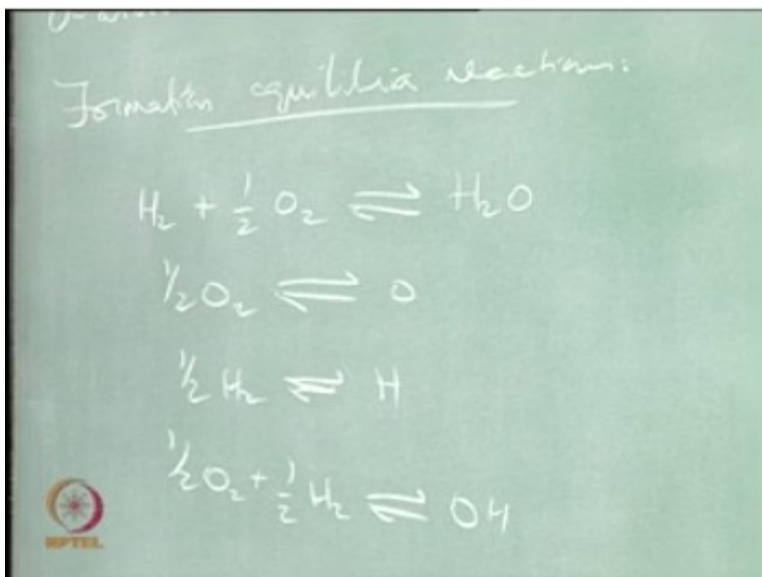 Formation equilibria reactions:
H₂ + 1/2 O₂ ⇌ H₂O
1/2 O₂ ⇌ O
1/2 H₂ ⇌ H
1/2 O₂ + 1/2 H₂ ⇌ OH
NPTEL